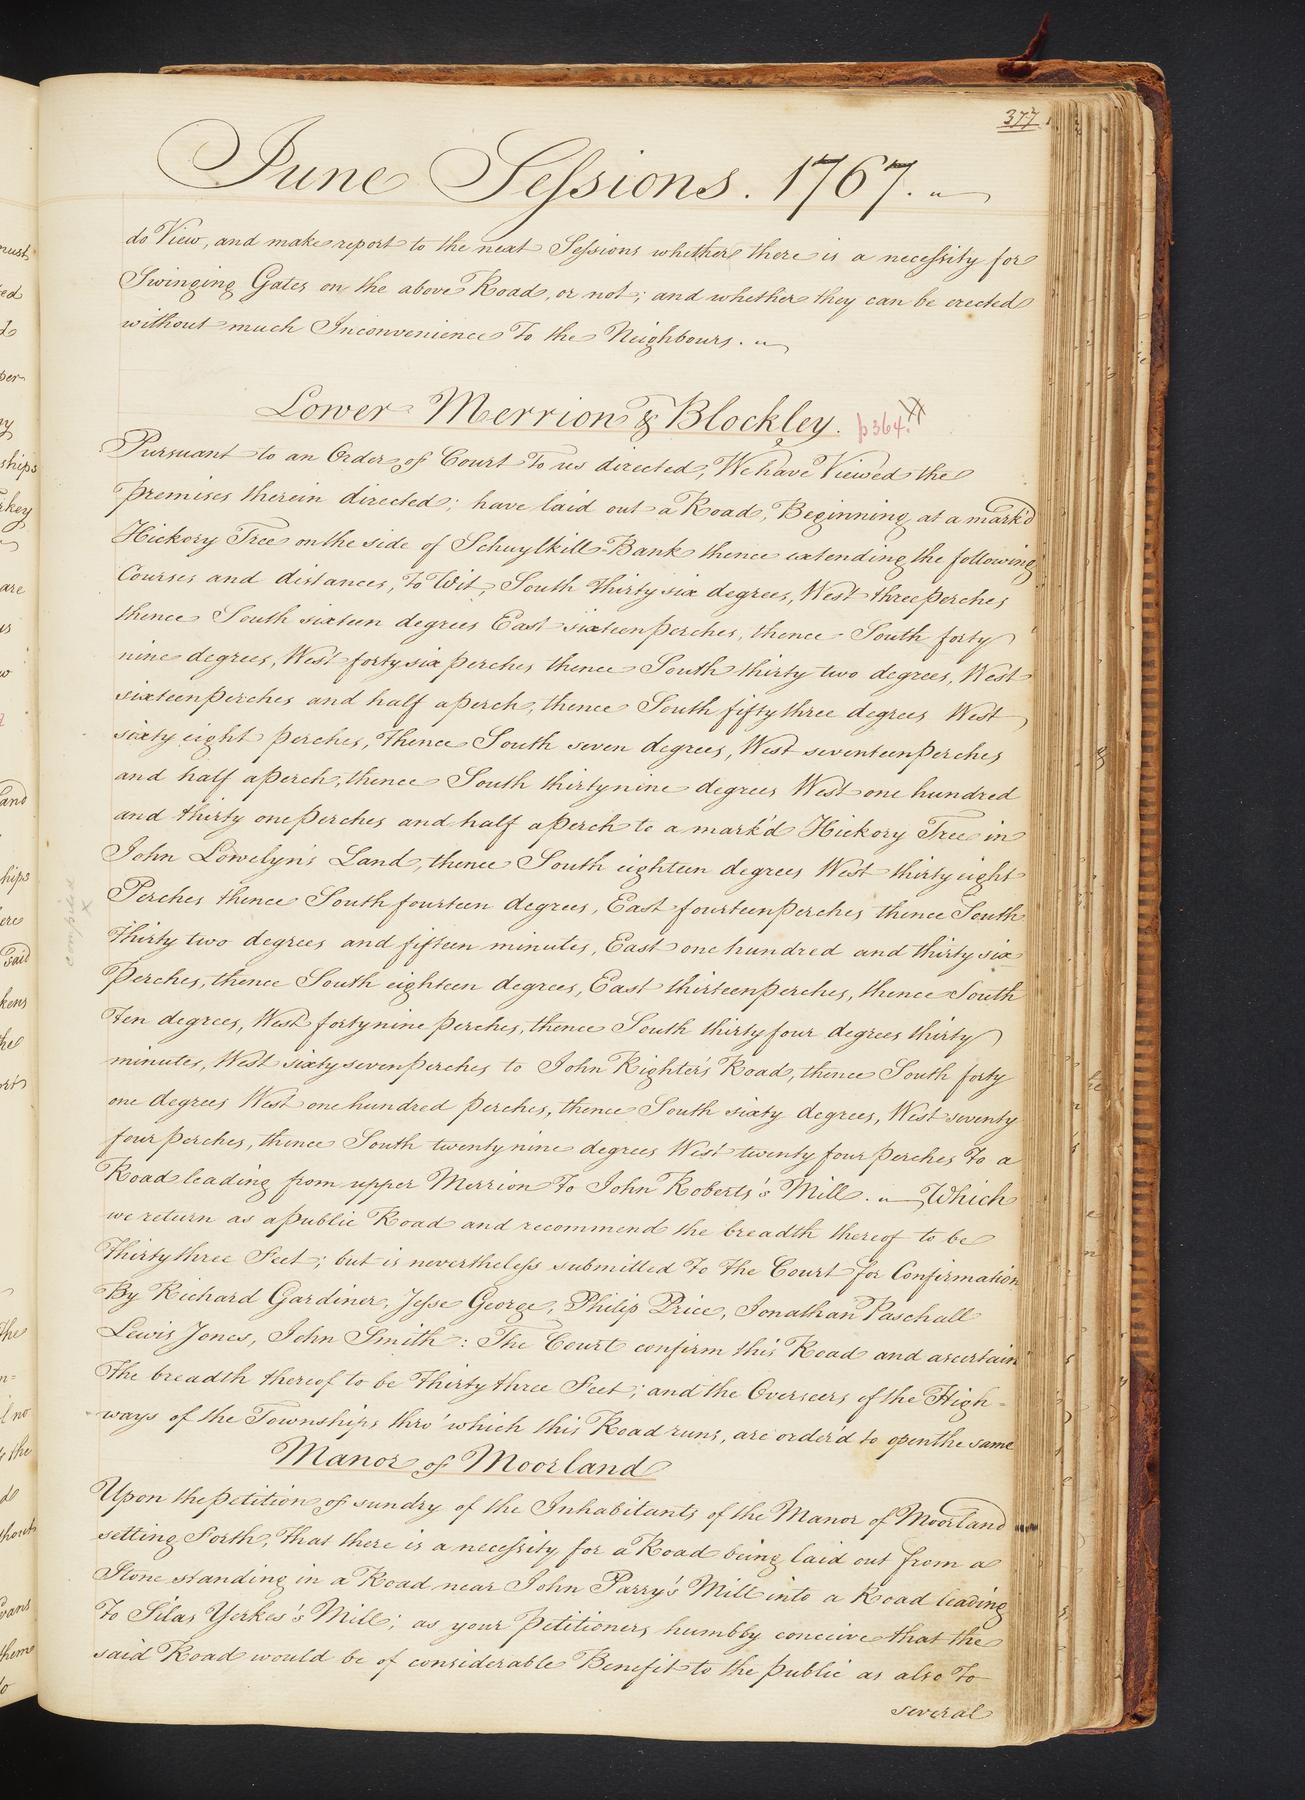 377
June Sessions. 1767.
do View, and make report to the next Sessions whether there is a necessity for
Swinging Gates on the above Road, or not; and whether they can be erected
without much Inconvenience To the Neighbours.
Lower Merrion & Blockley. p364.
Pursuant to an Order of Court To us directed, We have Viewed the
premises therein directed; have laid out a Road, Beginning at a mark'd
Hickory Tree on the side of Schuylkill Bank thence extending the following
Courses and distances, To Wit, South thirty six degrees, West three perches
thence South sixteen degrees East sixteen perches, thence South forty
nine degrees, West forty six perches thence South thirty two degrees, West
sixteen perches and half a perch, thence South fifty three degrees West
sixty eight perches, Thence South seven degrees, West seventeen perches
and half a perch, thence South thirty nine degrees West one hundred
and thirty one perches and half a perch to a mark'd Hickory Tree in
John Lowelyn's Land, thence South eighteen degrees West thirty eight
Perches thence South fourteen degrees, East fourteen perches thence South
Thirty two degrees and fifteen minutes, East one hundred and thirty six
Perches, thence South eighteen degrees, East thirteen perches, thence South
Ten degrees, West forty nine perches, thence South thirty four degrees thirty
minutes, West sixty seven perches to John Righter's Road, thence South forty
one degrees West one hundred perches, thence South sixty degrees, West seventy
four perches, thence South twenty nine degrees West twenty four perches To a
Road leading from upper Merrion To John Roberts's Mill. Which
we return as a public Road and recommend the breadth thereof to be
Thirty three Feet; but is nevertheless submitted To the Court for Confirmation
By Richard Gardiner, Jesse George, Philip Price, Jonathan Paschall
Lewis Jones, John Smith: The Court confirm this Road and ascertain
The breadth thereof to be Thirty three Feet; and the Overseers of the High-
ways of the Townships thro' which this Road runs, are order'd to open the same
Manor of Moorland
Upon the petition of sundry of the Inhabitants of the Manor of Moorland
setting Forth, That there is a necessity for a Road being laid out from a
Stone standing in a Road near John Parry's Mill into a Road leading
To Silas Yerkes's Mill; as your petitioners humbly conceive that the
said Road would be of considerable Benefit to the public as also To
several
copied
X